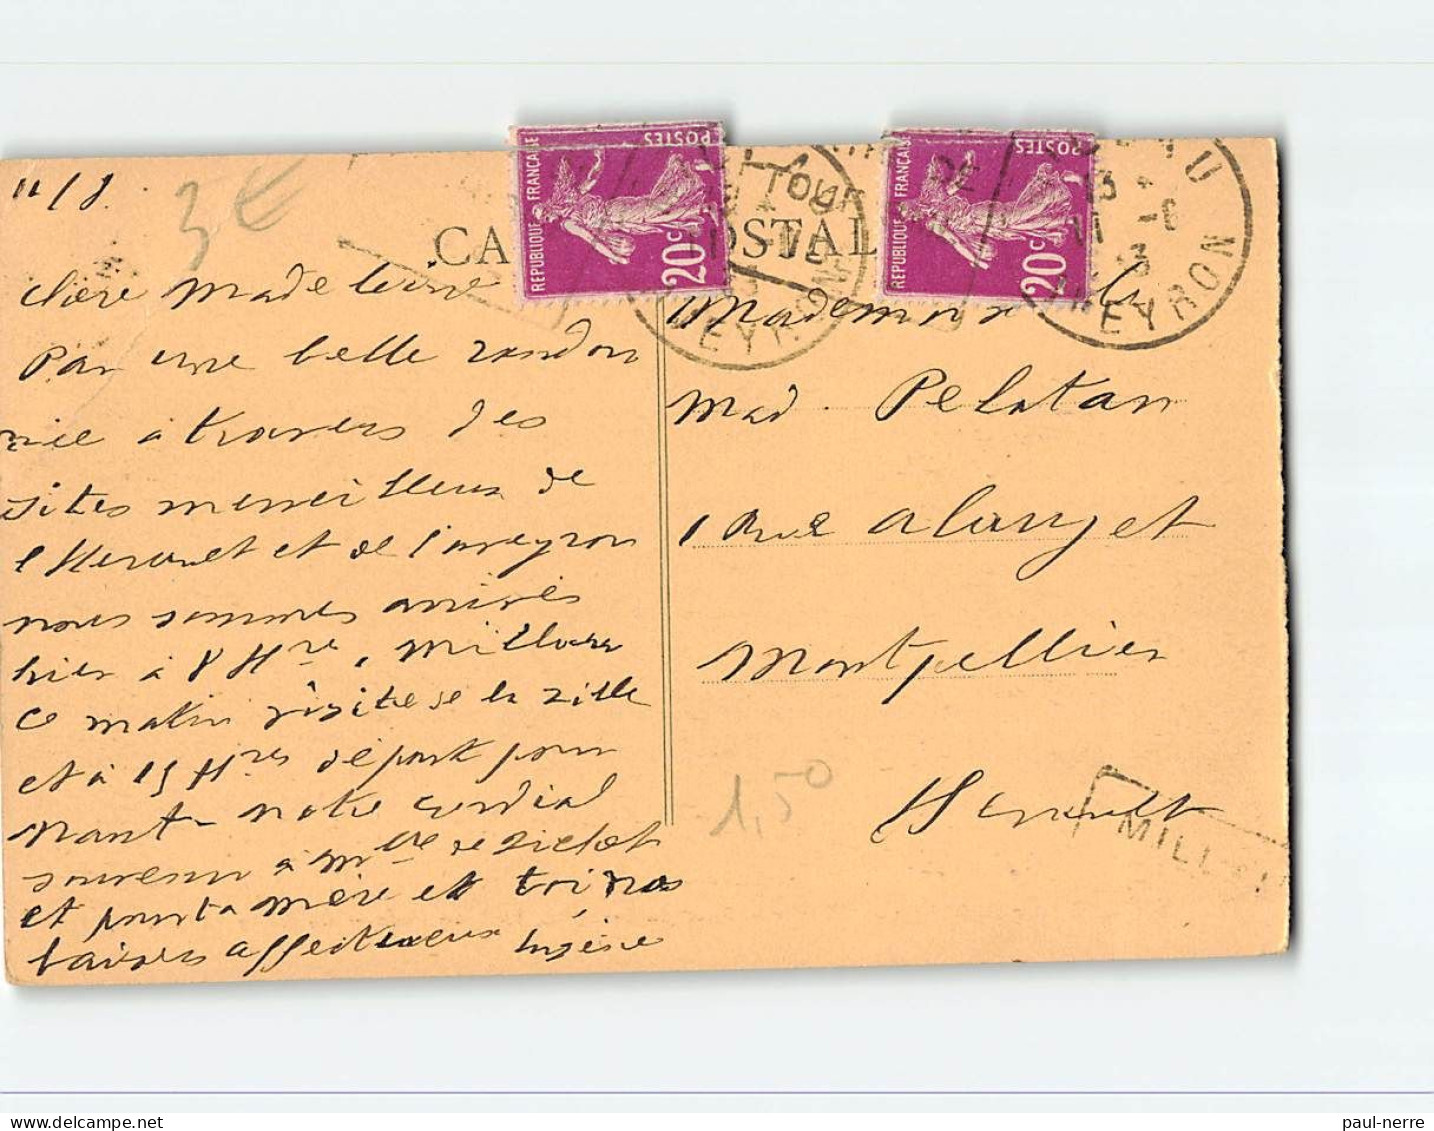 11/8.
3€
CA
OSTAL
REPUBLIQUE FRANÇAISE
POSTES
20c
REPUBLIQUE FRANÇAISE
POSTES
20c
TOUR
DE
13
11 -8
AVEYRON
chère Madeleine
Par une belle randon
née à travers des
sites merveilleux de
l'Herault et de l'aveyron
nous sommes arrivés
hier à 8 Hres, Millau
Ce matin visite de la ville
et à 15 Hres départ pour
Nant. notre cordial
souvenir à Mme
et pour ta mère et toi nos
baisers affectueux
Mademoiselle
Mad. Pelatan
1 Rue
Montpellier
Herault
1,50
MILL
paul-nerre
delcampe.net